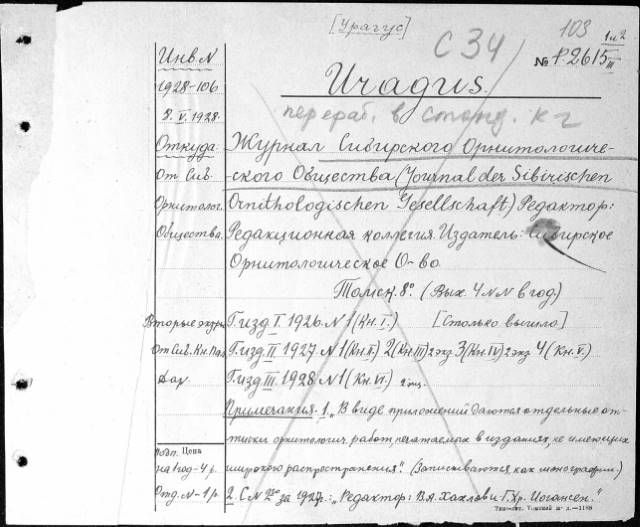 [Урагус]
103
1 и 2
С 34
№ Р.2615 III
Инв. N
1928-106
8.V.1928.
Uragus.
перераб. в станд. к-г
Откуда:
От Сиб.
Орнитолог.
Общества.
Журнал Сибирского Орнитологиче-
ского Общества (Journal der Sibirischen
Ornithologischen Gesellschaft) Редактор:
Редакционная коллегия. Издатель: Сибирское
Орнитологическое О-во
Томск. 8°. (Вых. 4 NN в год.)
Вторые экз.
От Сиб. Кн. Пал.
Г. изд. I. 1926. N 1 (Кн. I.) [Столько вышло]
Г. изд. II 1927. N 1 (Кн. II.) 2 (Кн. III) 2 экз 3 (Кн. IV) 2 экз 4 (Кн. V.)
Г. изд. III. 1928 N 1 (Кн. VI)
Примечания. 1. „В виде приложений даются отдельные от-
тиски орнитологич. работ, печатаемых в изданиях, не имеющих
широкого распространения". (Записываются как монографии.)
2. С N 2го за 1927г.: „Редактор: В.А. Хахлов и Г.Хр. Иогансен."
подп. Цена
на 1 год - 4 р.
Отд. N - 1 р.
Типо-лит. Томской ж. д.—1188